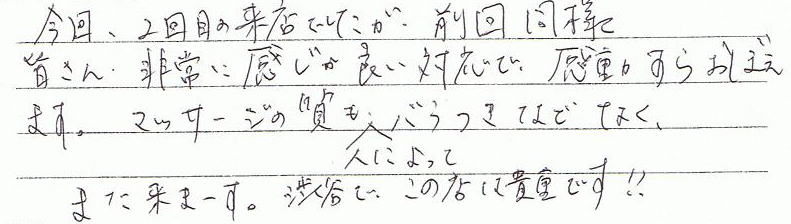 今回、2回目の来店でしたが、前回同様に
皆さん、非常に感じが良い対応で、感動すらおぼえ
ます。マッサージの質も、人によってバラつきなどなく、
また来まーす。渋谷で、この店は貴重です!!